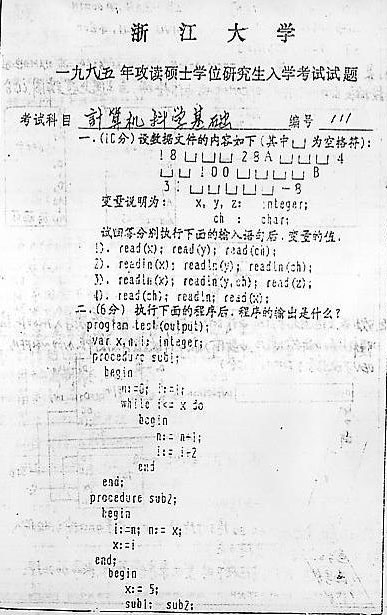 浙江大学
一九八五年攻读硕士学位研究生入学考试试题
考试科目 計算机科学基础 编号 111
一.(10分)设数据文件的内容如下(其中␣为空格符):
18␣␣␣28A␣␣␣4
␣␣100␣␣␣␣B
3␣␣␣␣␣-8
变量说明为: x, y, z: integer;
ch : char;
试回答分别执行下面的输入语句后,变量的值.
1). read(x); read(y); read(ch);
2). readln(x); readln(y); readln(ch);
3). readln(x); readln(y,ch); read(z);
4). read(ch); readln; read(x);
二.(6分) 执行下面的程序后,程序的输出是什么?
program test(output);
var x,n,i: integer;
procedure sub1;
begin
n:=0; i:=1;
while i<= x do
begin
n:= n+i;
i:= i+2
end
end;
procedure sub2;
begin
i:=n; n:= x;
x:=i
end;
begin
x:= 5;
sub1; sub2;